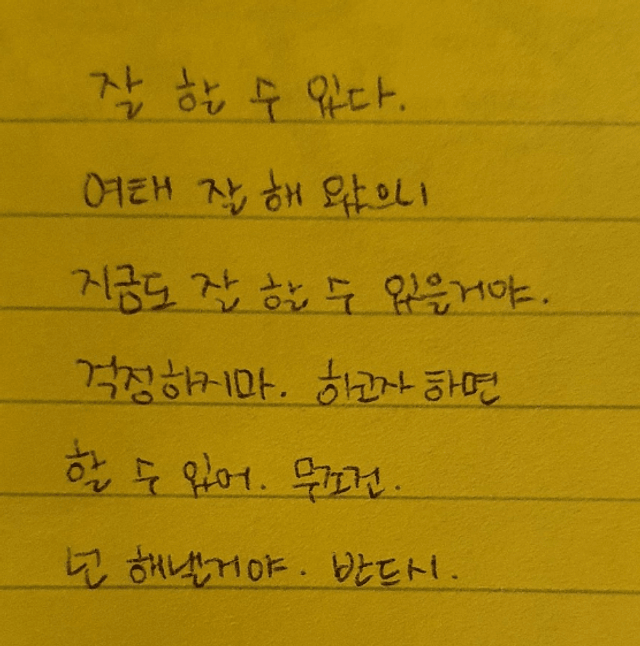 잘 할 수 있다.
여태 잘 해 왔으니
지금도 잘 할 수 있을거야.
걱정하지마. 하고자 하면
할 수 있어. 무조건.
넌 해낼거야. 반드시.